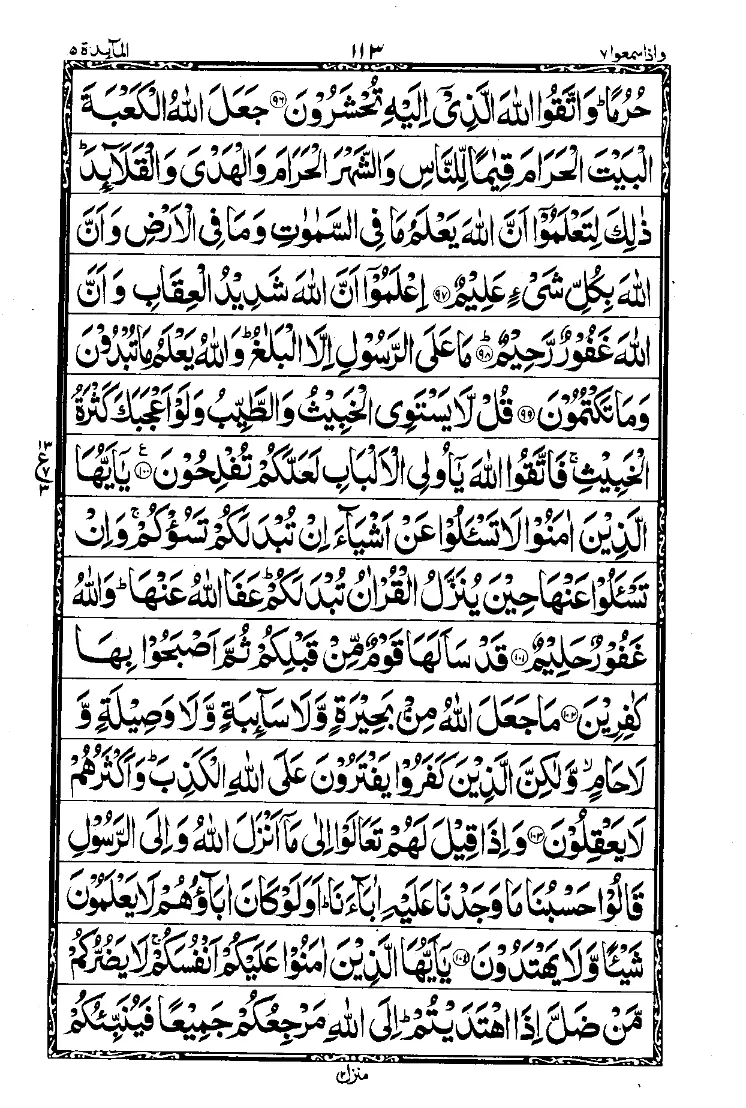 واذاسمعوا۷ ۱۱۳ المآىِٕدة ۵
حُرُمًاؕ وَاتَّقُوا اللّٰهَ الَّذِیْۤ اِلَیْهِ تُحْشَرُوْنَ ﴿۹۶﴾ جَعَلَ اللّٰهُ الْكَعْبَةَ
الْبَیْتَ الْحَرَامَ قِیٰمًا لِّلنَّاسِ وَالشَّهْرَ الْحَرَامَ وَالْهَدْیَ وَالْقَلَآىِٕدَؕ
ذٰلِكَ لِتَعْلَمُوْۤا اَنَّ اللّٰهَ یَعْلَمُ مَا فِی السَّمٰوٰتِ وَمَا فِی الْاَرْضِ وَاَنَّ
اللّٰهَ بِكُلِّ شَیْءٍ عَلِیْمٌ ﴿۹۷﴾ اِعْلَمُوْۤا اَنَّ اللّٰهَ شَدِیْدُ الْعِقَابِ وَاَنَّ
اللّٰهَ غَفُوْرٌ رَّحِیْمٌؕ ﴿۹۸﴾ مَا عَلَی الرَّسُوْلِ اِلَّا الْبَلٰغُؕ وَاللّٰهُ یَعْلَمُ مَا تُبْدُوْنَ
وَمَا تَكْتُمُوْنَ ﴿۹۹﴾ قُلْ لَّا یَسْتَوِی الْخَبِیْثُ وَالطَّیِّبُ وَلَوْ اَعْجَبَكَ كَثْرَةُ
الْخَبِیْثِۚ فَاتَّقُوا اللّٰهَ یٰۤاُولِی الْاَلْبَابِ لَعَلَّكُمْ تُفْلِحُوْنَ ﴿۱۰۰﴾ ع یٰۤاَیُّهَا
۱۳ ع ۷ ۳
الَّذِیْنَ اٰمَنُوْا لَا تَسْـَٔلُوْا عَنْ اَشْیَآءَ اِنْ تُبْدَ لَكُمْ تَسُؤْكُمْۚ وَاِنْ
تَسْـَٔلُوْا عَنْهَا حِیْنَ یُنَزَّلُ الْقُرْاٰنُ تُبْدَ لَكُمْؕ عَفَا اللّٰهُ عَنْهَاؕ وَاللّٰهُ
غَفُوْرٌ حَلِیْمٌ ﴿۱۰۱﴾ قَدْ سَاَلَهَا قَوْمٌ مِّنْ قَبْلِكُمْ ثُمَّ اَصْبَحُوْا بِهَا
كٰفِرِیْنَ ﴿۱۰۲﴾ مَا جَعَلَ اللّٰهُ مِنْۢ بَحِیْرَةٍ وَّلَا سَآىِٕبَةٍ وَّلَا وَصِیْلَةٍ وَّ
لَا حَامٍۙ وَّلٰكِنَّ الَّذِیْنَ كَفَرُوْا یَفْتَرُوْنَ عَلَی اللّٰهِ الْكَذِبَؕ وَاَكْثَرُهُمْ
لَا یَعْقِلُوْنَ ﴿۱۰۳﴾ وَاِذَا قِیْلَ لَهُمْ تَعَالَوْا اِلٰی مَاۤ اَنْزَلَ اللّٰهُ وَاِلَی الرَّسُوْلِ
قَالُوْا حَسْبُنَا مَا وَجَدْنَا عَلَیْهِ اٰبَآءَنَاؕ اَوَلَوْ كَانَ اٰبَآؤُهُمْ لَا یَعْلَمُوْنَ
شَیْـًٔا وَّلَا یَهْتَدُوْنَ ﴿۱۰۴﴾ یٰۤاَیُّهَا الَّذِیْنَ اٰمَنُوْا عَلَیْكُمْ اَنْفُسَكُمْۚ لَا یَضُرُّكُمْ
مَّنْ ضَلَّ اِذَا اهْتَدَیْتُمْؕ اِلَی اللّٰهِ مَرْجِعُكُمْ جَمِیْعًا فَیُنَبِّئُكُمْ
منزل۲